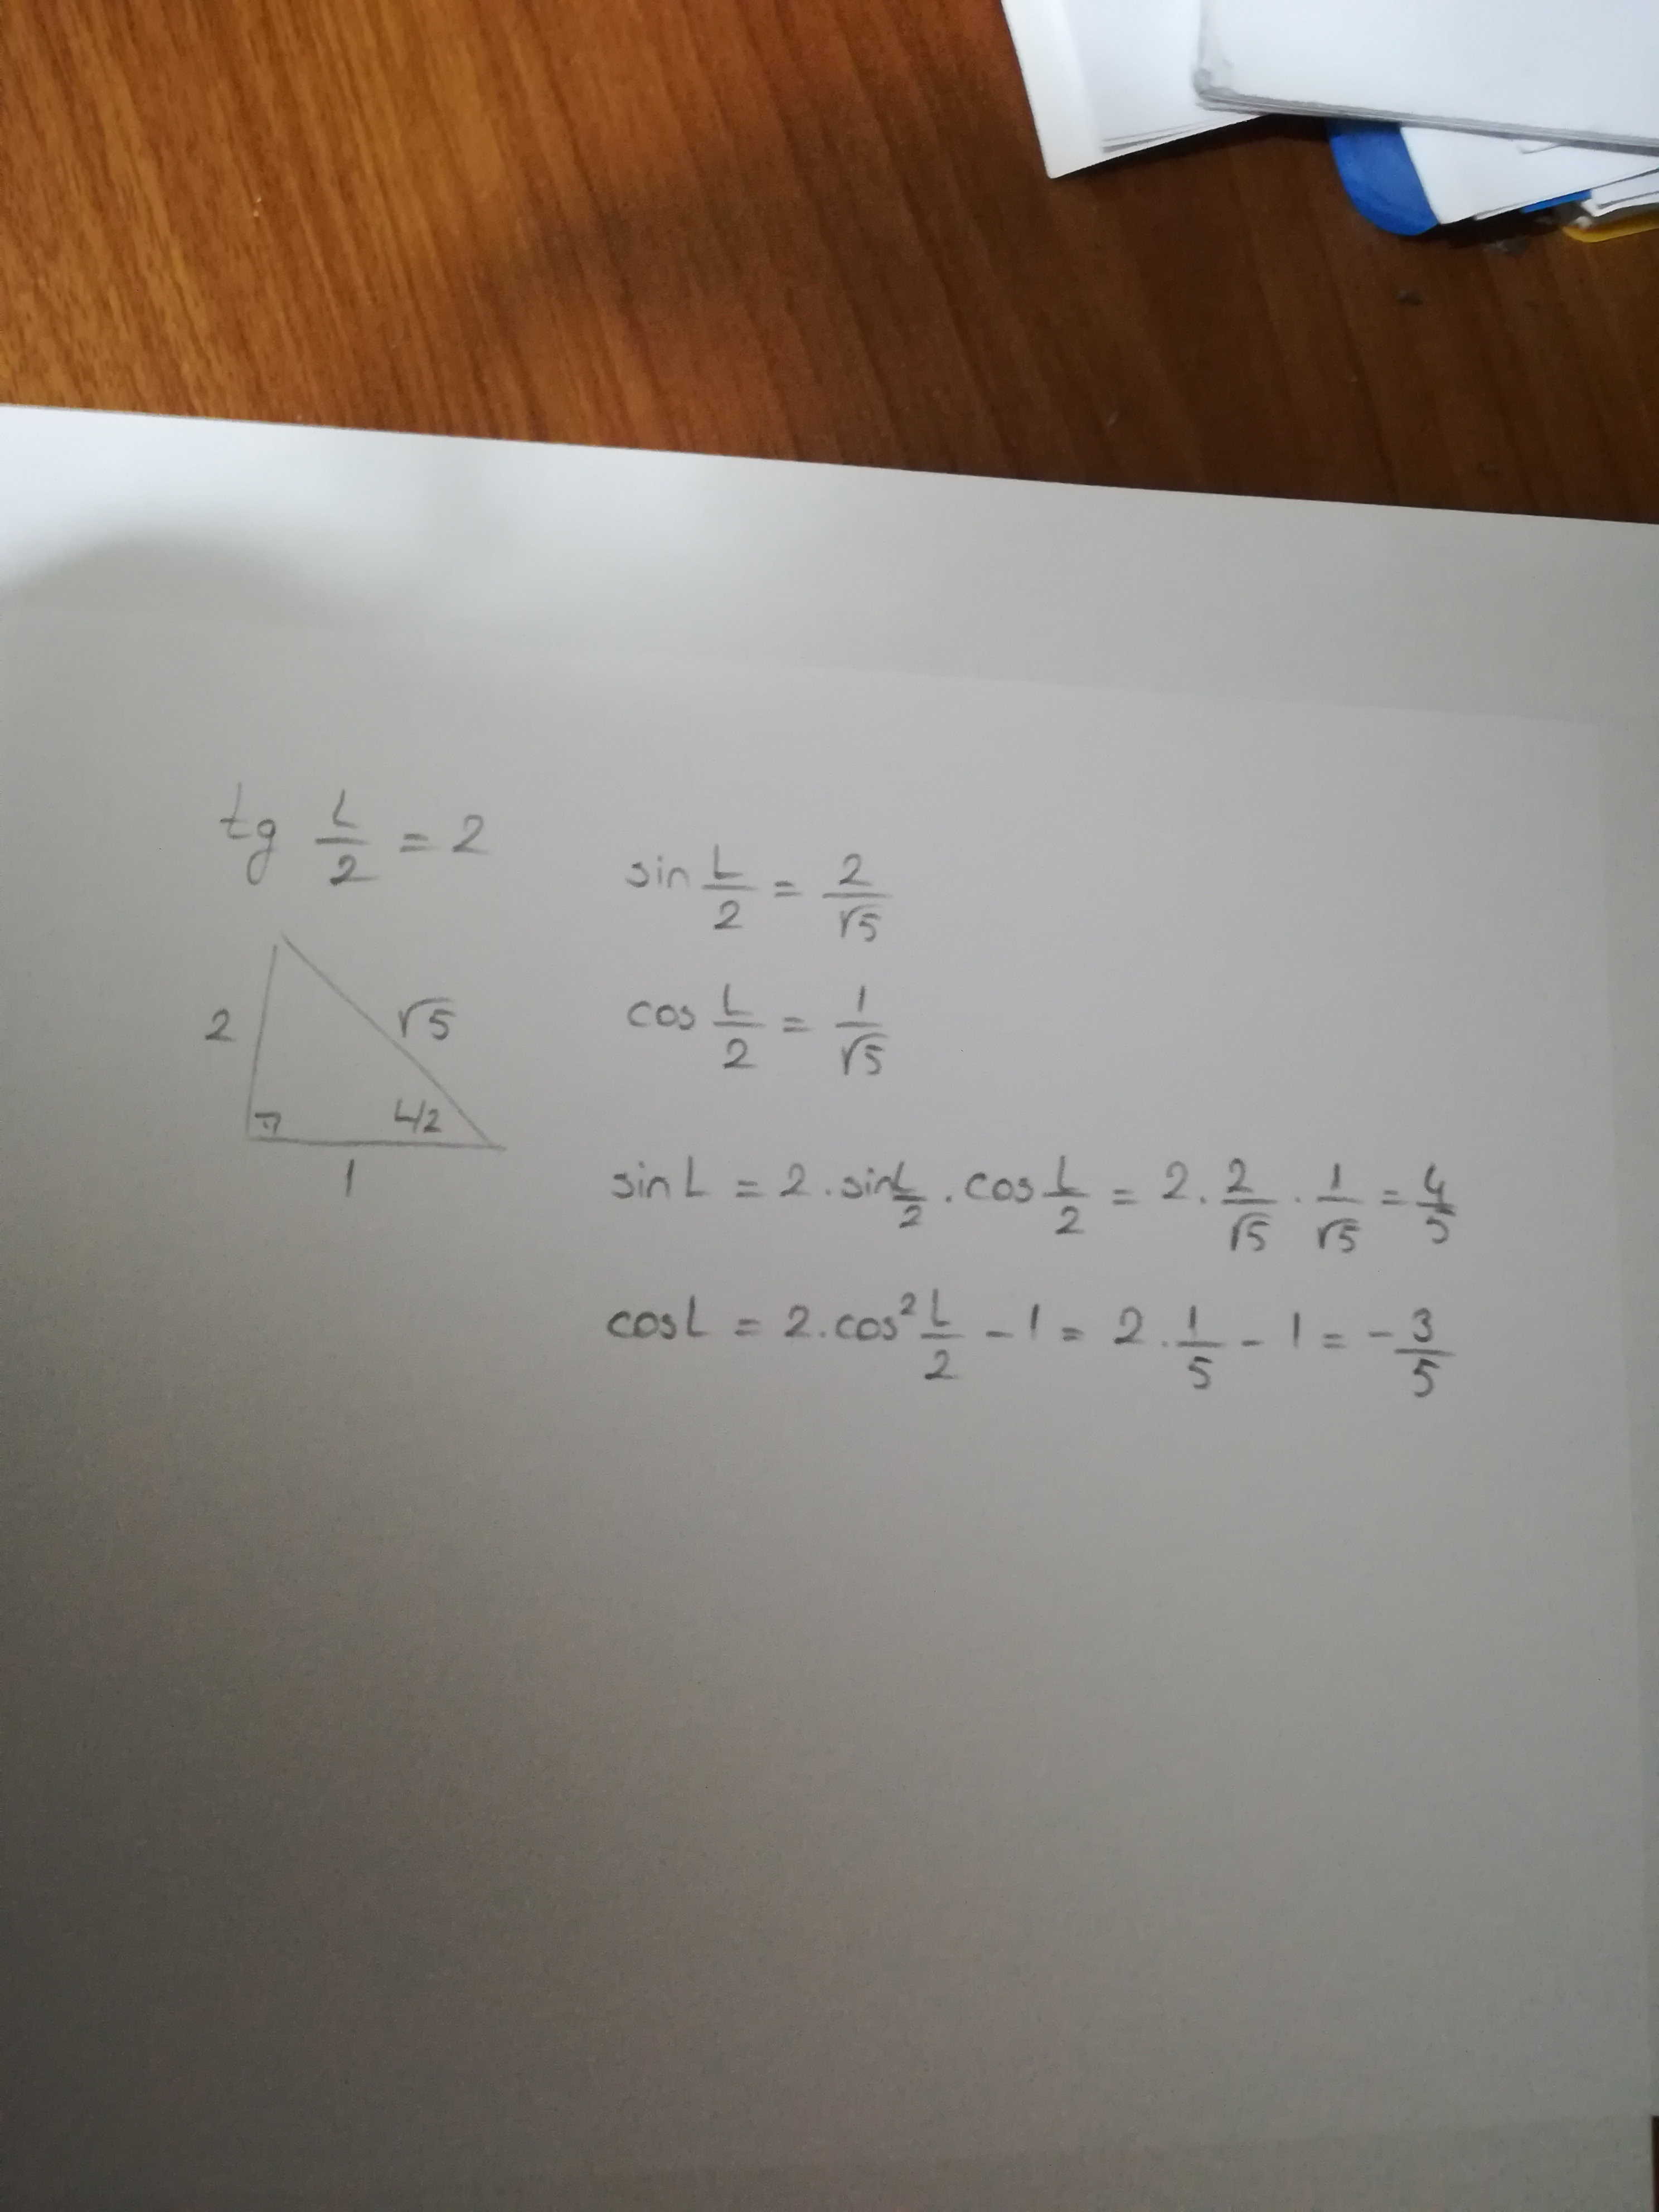 tg L/2 = 2
sin L/2 = 2/√5
2
√5
L/2
1
cos L/2 = 1/√5
sin L = 2 . sin L/2 . cos L/2 = 2 . 2/√5 . 1/√5 = 4/5
cos L = 2 . cos² L/2 - 1 = 2 . 1/5 - 1 = - 3/5